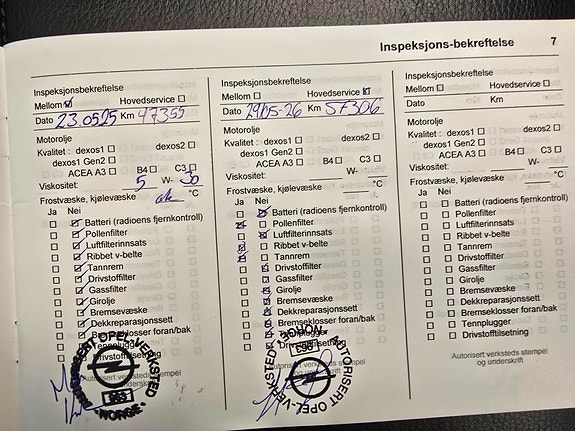 Inspeksjons-bekreftelse 7
Inspeksjonsbekreftelse
Mellom Hovedservice
Dato 23.0525 Km 47355
Motorolje
Kvalitet : dexos1 dexos2
dexos1 Gen2
ACEA A3 B4 C3
Viskositet: 5 W- 30
Frostvæske, kjølevæske ok °C
Ja Nei
Batteri (radioens fjernkontroll)
Pollenfilter
Luftfilterinnsats
Ribbet v-belte
Tannrem
Drivstoffilter
Gassfilter
Girolje
Bremsevæske
Dekkreparasjonssett
Bremseklosser foran/bak
Tennplugger
Drivstofftilsetning
Autorisert verksteds stempel
og underskrift
OPEL-VERKSTED
NORGE
Inspeksjonsbekreftelse
Mellom Hovedservice
Dato 29/05-26 Km 57306
Motorolje
Kvalitet : dexos1 dexos2
dexos1 Gen2
ACEA A3 B4 C3
Viskositet: W-
Frostvæske, kjølevæske °C
Ja Nei
Batteri (radioens fjernkontroll)
Pollenfilter
Luftfilterinnsats
Ribbet v-belte
Tannrem
Drivstoffilter
Gassfilter
Girolje
Bremsevæske
Dekkreparasjonssett
Bremseklosser foran/bak
Tennplugger
Drivstofftilsetning
AUTORISERT OPEL-VERKSTED
NORGE
Inspeksjonsbekreftelse
Mellom Hovedservice
Dato Km
Motorolje
Kvalitet : dexos1 dexos2
dexos1 Gen2
ACEA A3 B4 C3
Viskositet: W-
Frostvæske, kjølevæske °C
Ja Nei
Batteri (radioens fjernkontroll)
Pollenfilter
Luftfilterinnsats
Ribbet v-belte
Tannrem
Drivstoffilter
Gassfilter
Girolje
Bremsevæske
Dekkreparasjonssett
Bremseklosser foran/bak
Tennplugger
Drivstofftilsetning
Autorisert verksteds stempel
og underskrift